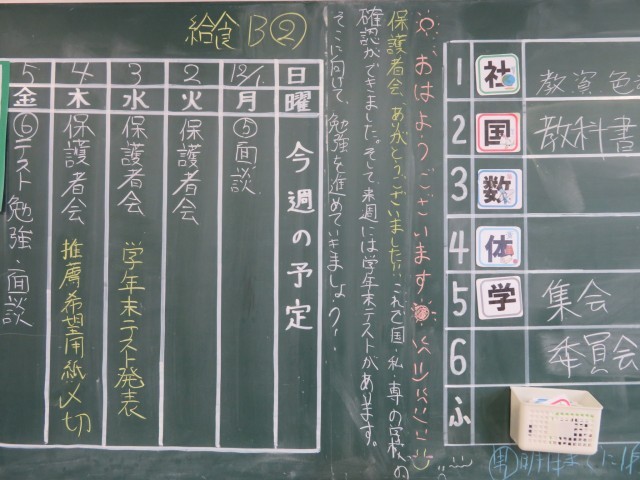 給食 B②
今週の予定
日曜
12/1 月 ⑤面談
2 火 保護者会
3 水 保護者会 学年末テスト発表
4 木 保護者会 推薦希望用紙〆切
5 金 ⑥テスト勉強・面談
おはようございます
保護者会、ありがとうございました!! これで国・私・専の学校への
確認ができました。そして来週には学年末テストがあります。
そこに向けて、勉強を進めていきましょう!
1 社 教資 色
2 国 教科書
3 数
4 体
5 学 集会
6 委員会
ふ